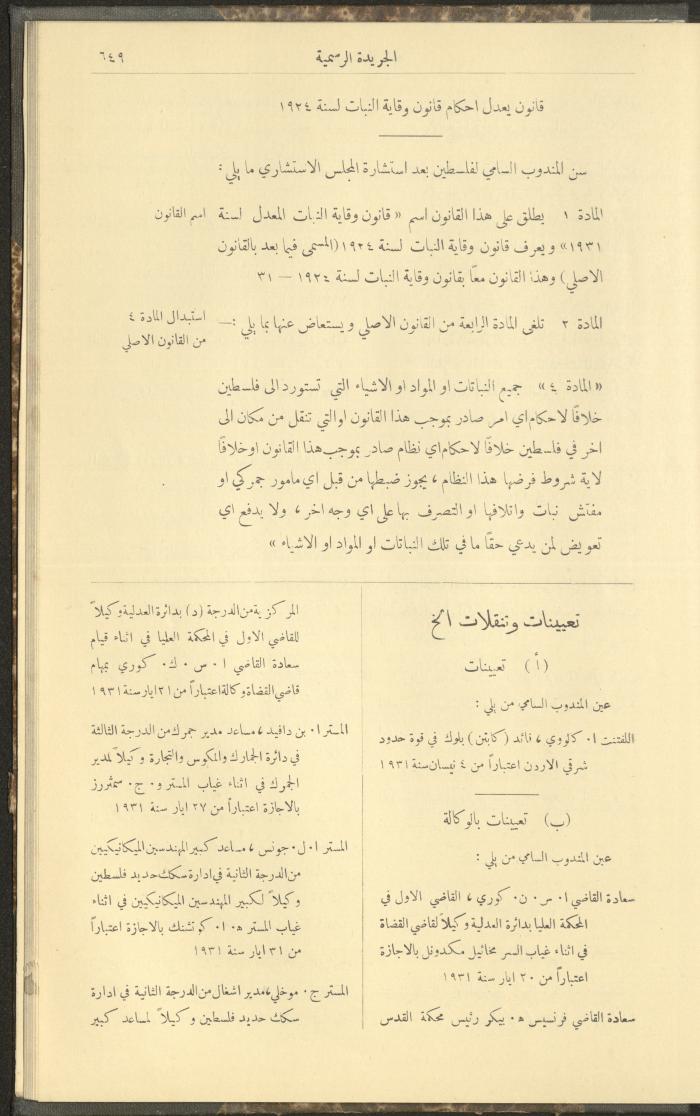 الجريدة الرسمية
٦٤٩
قانون يعدل احكام قانون وقاية النبات لسنة ١٩٢٤
سن المندوب السامي لفلسطين بعد استشارة المجلس الاستشاري ما يلي :
المادة ١ يطلق على هذا القانون اسم « قانون وقاية النبات المعدل لسنة
١٩٣١» ويعرف قانون وقاية النبات لسنة ١٩٢٤ (المسمى فيما بعد بالقانون
الاصلي) وهذا القانون معًا بقانون وقاية النبات لسنة ١٩٢٤ — ٣١
اسم القانون
المادة ٢ تلغى المادة الرابعة من القانون الاصلي ويستعاض عنها بما يلي :—
استبدال المادة ٤
من القانون الاصلي
« المادة ٤ » جميع النباتات او المواد او الاشياء التي تستورد الى فلسطين
خلافًا لاحكام اي امر صادر بموجب هذا القانون او التي تنقل من مكان الى
اخر في فلسطين خلافًا لاحكام اي نظام صادر بموجب هذا القانون او خلافًا
لاية شروط فرضها هذا النظام ، يجوز ضبطها من قبل اي مامور جمركي او
مفتش نبات واتلافها او التصرف بها على اي وجه اخر ، ولا يدفع اي
تعويض لمن يدعي حقًا ما في تلك النباتات او المواد او الاشياء »
تعيينات وتنقلات الخ
(أ) تعيينات
عين المندوب السامي من يلي :
اللفتننت ا. كلووي ، قائد (كابتن) بلوك في قوة حدود
شرقي الاردن اعتباراً من ٤ نيسان سنة ١٩٣١
(ب) تعيينات بالوكالة
عين المندوب السامي من يلي :
سعادة القاضي ا. س. ن. كوري ، القاضي الاول في
المحكمة العليا بدائرة العدلية وكيلاً لقاضي القضاة
في اثناء غياب السر مخائيل مكدونل بالاجازة
اعتباراً من ٢٠ ايار سنة ١٩٣١
سعادة القاضي فرنسيس ه. بيكر رئيس محكمة القدس
المركزية من الدرجة (د) بدائرة العدلية وكيلاً
للقاضي الاول في المحكمة العليا في اثناء قيام
سعادة القاضي ا. س. ك. كوري بمهام
قاضي القضاة وكالة اعتباراً من ٢١ ايار سنة ١٩٣١
المستر ا. بن دافيد ، مساعد مدير جمرك من الدرجة الثالثة
في دائرة الجمارك والمكوس والتجارة وكيلاً لمدير
الجمرك في اثناء غياب المستر و. ج. سمثررز
بالاجازة اعتباراً من ٢٧ ايار سنة ١٩٣١
المستر ا. ل. جونس ، مساعد كبير المهندسين الميكانيكيين
من الدرجة الثانية في ادارة سكك حديد فلسطين
وكيلاً لكبير المهندسين الميكانيكيين في اثناء
غياب المستر ه. ا. كوتشنك بالاجازة اعتباراً
من ٣١ ايار سنة ١٩٣١
المستر ج. موخلي ، مدير اشغال من الدرجة الثانية في ادارة
سكك حديد فلسطين وكيلاً لمساعد كبير